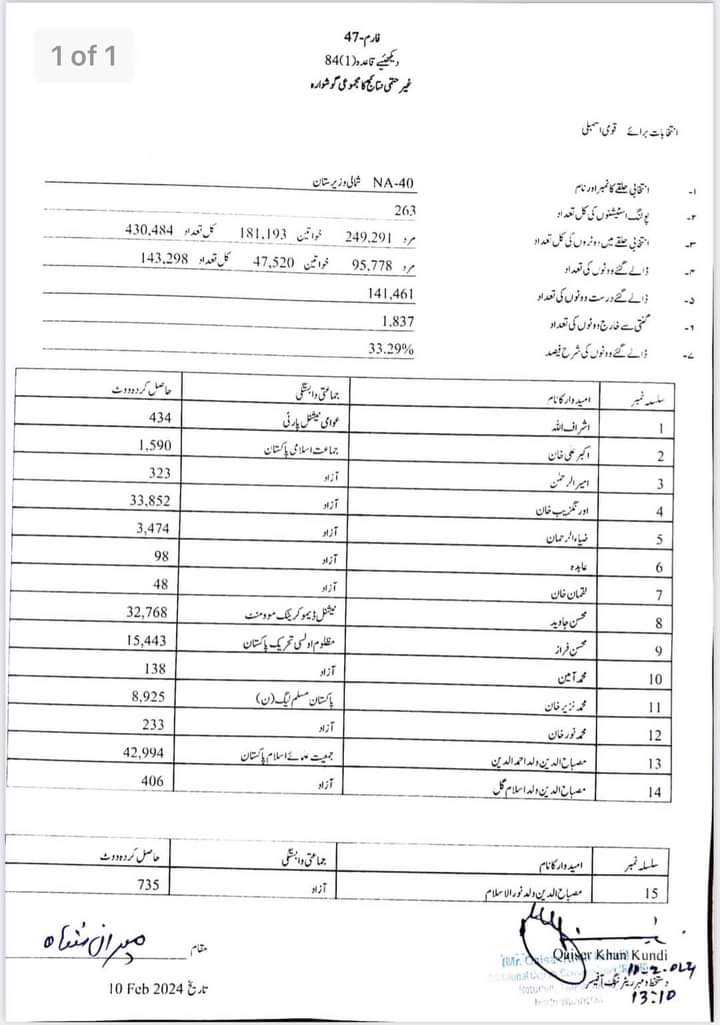 1 of 1
فارم-47
دیکھئیے قاعدہ(1)84
غیر حتمی نتائج کا مجموعی گوشوارہ
انتخابات برائے قومی اسمبلی
۱- انتخابی حلقے کا نمبر اور نام NA-40 شمالی وزیرستان
۲- پولنگ اسٹیشنوں کی کل تعداد 263
۳- انتخابی حلقے میں ووٹروں کی کل تعداد مرد 249,291 خواتین 181,193 کل تعداد 430,484
۴- ڈالے گئے ووٹوں کی تعداد مرد 95,778 خواتین 47,520 کل تعداد 143,298
۵- ڈالے گئے درست ووٹوں کی تعداد 141,461
۶- گنتی سے خارج ووٹوں کی تعداد 1,837
۷- ڈالے گئے ووٹوں کی شرح فیصد 33.29%
سلسلہ نمبر امیدوار کا نام جماعتی وابستگی حاصل کردہ ووٹ
1 اشراف اللہ عوامی نیشنل پارٹی 434
2 اکبر علی خان جماعت اسلامی پاکستان 1,590
3 امیر الرحمٰن آزاد 323
4 اورنگزیب خان آزاد 33,852
5 ضیاء الرحمان آزاد 3,474
6 عابدہ آزاد 98
7 لقمان خان آزاد 48
8 محسن جاوید نیشنل ڈیموکریٹک موومنٹ 32,768
9 محسن فراز مظلوم اولسی تحریک پاکستان 15,443
10 محمد آمین آزاد 138
11 محمد نزیر خان پاکستان مسلم لیگ (ن) 8,925
12 محمد نور خان آزاد 233
13 مصباح الدین ولد احمد الدین جمعیت علمائے اسلام پاکستان 42,994
14 مصباح الدین ولد اسلام گل آزاد 406
سلسلہ نمبر امیدوار کا نام جماعتی وابستگی حاصل کردہ ووٹ
15 مصباح الدین ولد نور الاسلام آزاد 735
مقام میران شاہ
Quiser Khan Kundi
دستخط و مہر ریٹرننگ آفیسر
تاریخ 10 Feb 2024
10-2-024
13:10